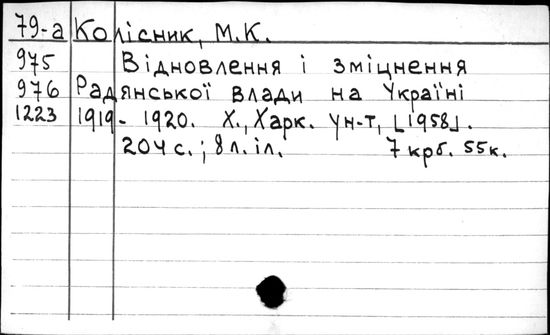 79-а Колісник, М.К.
975 Відновлення і зміцнення
976 Радянської влади на Україні
1223 1919- 1920. Х., Харк. Ун-т, [1958].
204 с.; 8 л. іл. 7 крб. 55к.